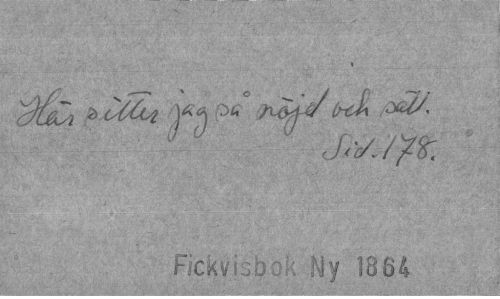 Här sitter jag så nöjd och sätt.
Sid. 178.
Fickvisbok Ny 1864